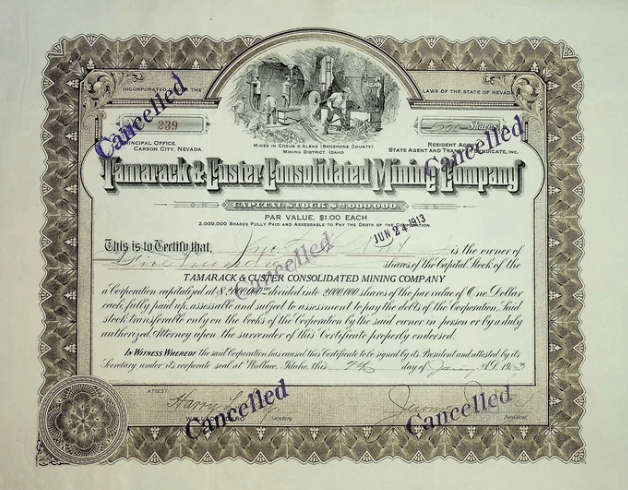 INCORPORATED UNDER THE
LAWS OF THE STATE OF NEVADA
239
Shares
PRINCIPAL OFFICE,
CARSON CITY, NEVADA.
MINES IN COEUR D'ALENE (SHOSHONE COUNTY)
MINING DISTRICT, IDAHO
RESIDENT AGENT
STATE AGENT AND TRANSFER SYNDICATE, INC.
Tamarack & Custer Consolidated Mining Company
CAPITAL STOCK $2,000,000
PAR VALUE, $1.00 EACH
2,000,000 SHARES FULLY PAID AND ASSESSABLE TO PAY THE DEBTS OF THE CORPORATION
JUN 24 1913
This is to Certify that, is the owner of
shares of the Capital Stock of the
TAMARACK & CUSTER CONSOLIDATED MINING COMPANY
a Corporation capitalized at $2,000,000 divided into 2,000,000 shares of the par value of One Dollar
each, fully paid up, assessable and subject to assessment to pay the debts of the Corporation. Said
stock transferable only on the books of the Corporation by the said owner in person or by a duly
authorized Attorney upon the surrender of this Certificate properly endorsed.
IN WITNESS WHEREOF the said Corporation has caused this Certificate to be signed by its President and attested by its
Secretary under its corporate seal at Wallace, Idaho, this day of A.D. 191
ATTEST:
Harry
Secretary
President
Cancelled
Cancelled
Cancelled
Cancelled
Cancelled